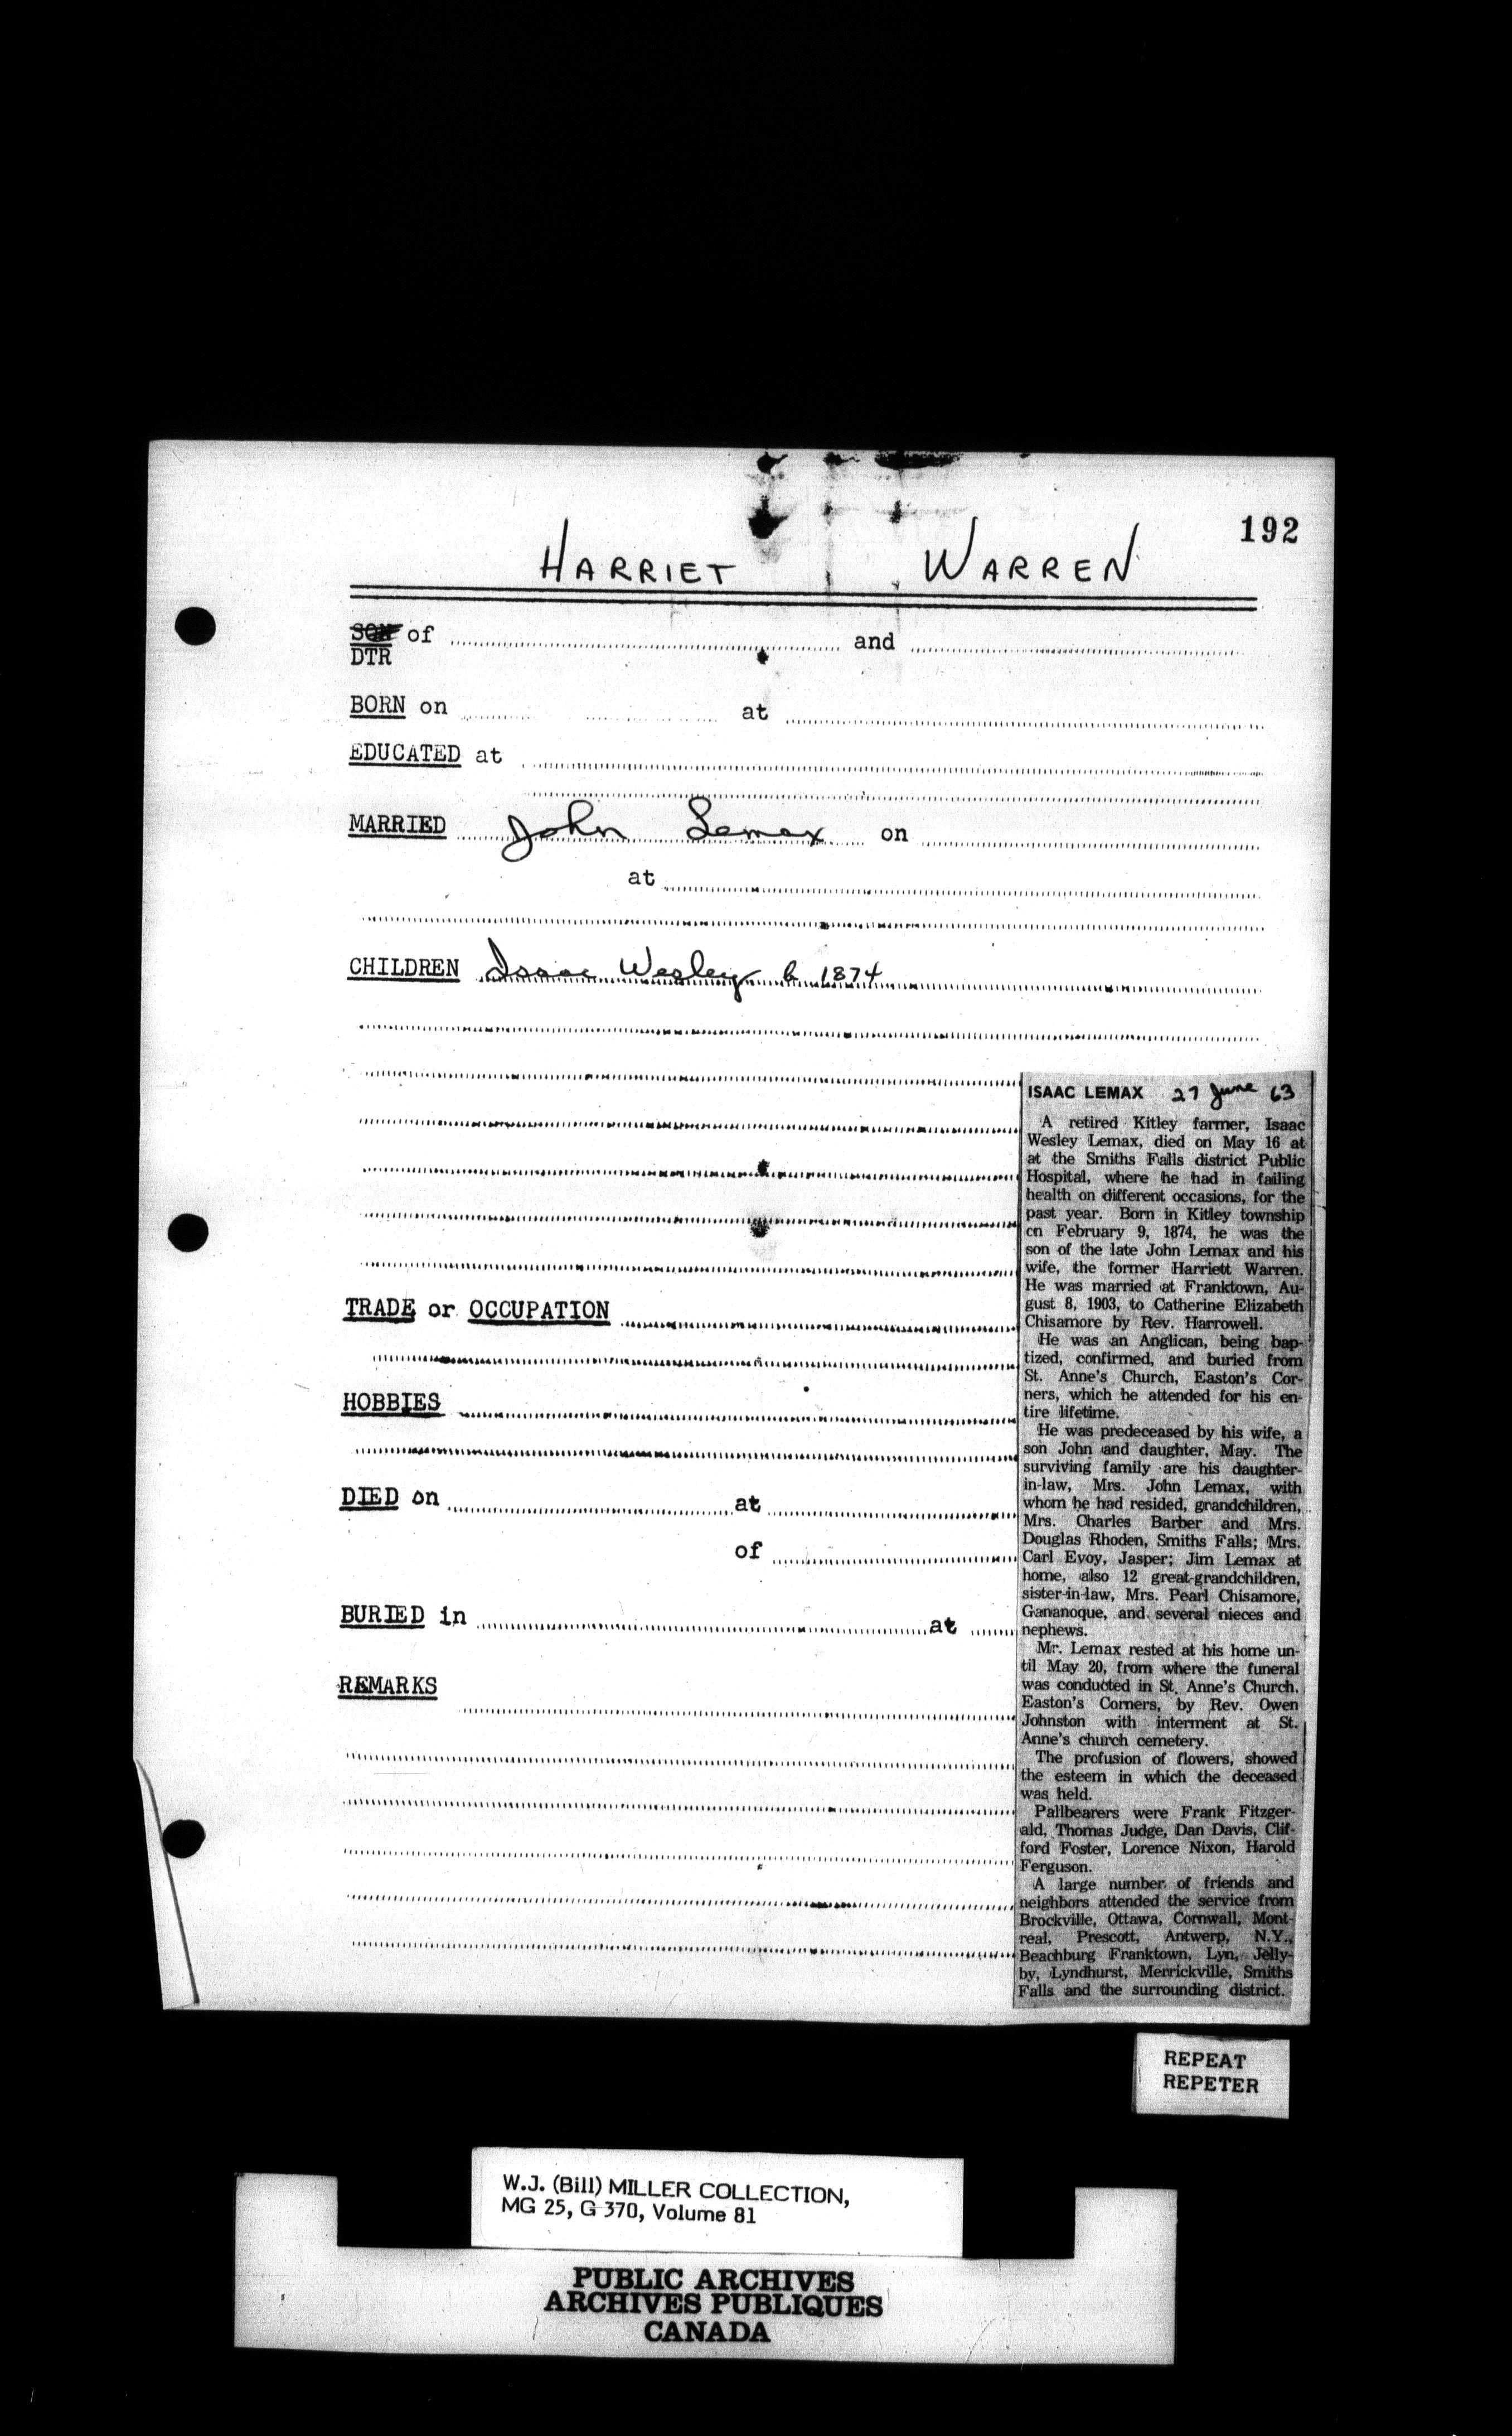 192
HARRIET WARREN
SON of and
DTR
BORN on at
EDUCATED at
MARRIED John Lemax on
at
CHILDREN Isaac Wesley b 1874
ISAAC LEMAX 27 June 63
A retired Kitley farmer, Isaac
Wesley Lemax, died on May 16 at
at the Smiths Falls district Public
Hospital, where he had in failing
health on different occasions, for the
past year. Born in Kitley township
on February 9, 1874, he was the
son of the late John Lemax and his
wife, the former Harriett Warren.
He was married at Franktown, Au-
gust 8, 1903, to Catherine Elizabeth
Chisamore by Rev. Harrowell.
He was an Anglican, being bap-
tized, confirmed, and buried from
St. Anne's Church, Easton's Cor-
ners, which he attended for his en-
tire lifetime.
He was predeceased by his wife, a
son John and daughter, May. The
surviving family are his daughter-
in-law, Mrs. John Lemax, with
whom he had resided, grandchildren,
Mrs. Charles Barber and Mrs.
Douglas Rhoden, Smiths Falls; Mrs.
Carl Evoy, Jasper; Jim Lemax at
home, also 12 great-grandchildren,
sister-in-law, Mrs. Pearl Chisamore,
Gananoque, and several nieces and
nephews.
Mr. Lemax rested at his home un-
til May 20, from where the funeral
was conducted in St. Anne's Church,
Easton's Corners, by Rev. Owen
Johnston with interment at St.
Anne's church cemetery.
The profusion of flowers, showed
the esteem in which the deceased
was held.
Pallbearers were Frank Fitzger-
ald, Thomas Judge, Dan Davis, Clif-
ford Foster, Lorence Nixon, Harold
Ferguson.
A large number of friends and
neighbors attended the service from
Brockville, Ottawa, Cornwall, Mont-
real, Prescott, Antwerp, N.Y.,
Beachburg Franktown, Lyn, Jelly-
by, Lyndhurst, Merrickville, Smiths
Falls and the surrounding district.
TRADE or OCCUPATION
HOBBIES
DIED on at
of
BURIED in at
REMARKS
REPEAT
REPETER
W.J. (Bill) MILLER COLLECTION,
MG 25, G 370, Volume 81
PUBLIC ARCHIVES
ARCHIVES PUBLIQUES
CANADA